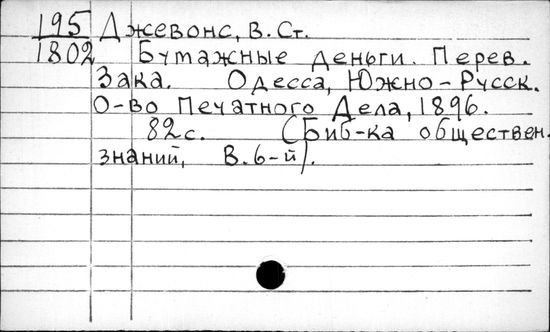 195 Джевонс, В. Ст.
1802 Бумажные деньги. Перев.
Зака. Одесса, Южно-Русск.
О-во Печатного Дела, 1896.
82с. (Биб-ка обществен.
знаний, В. 6-й).